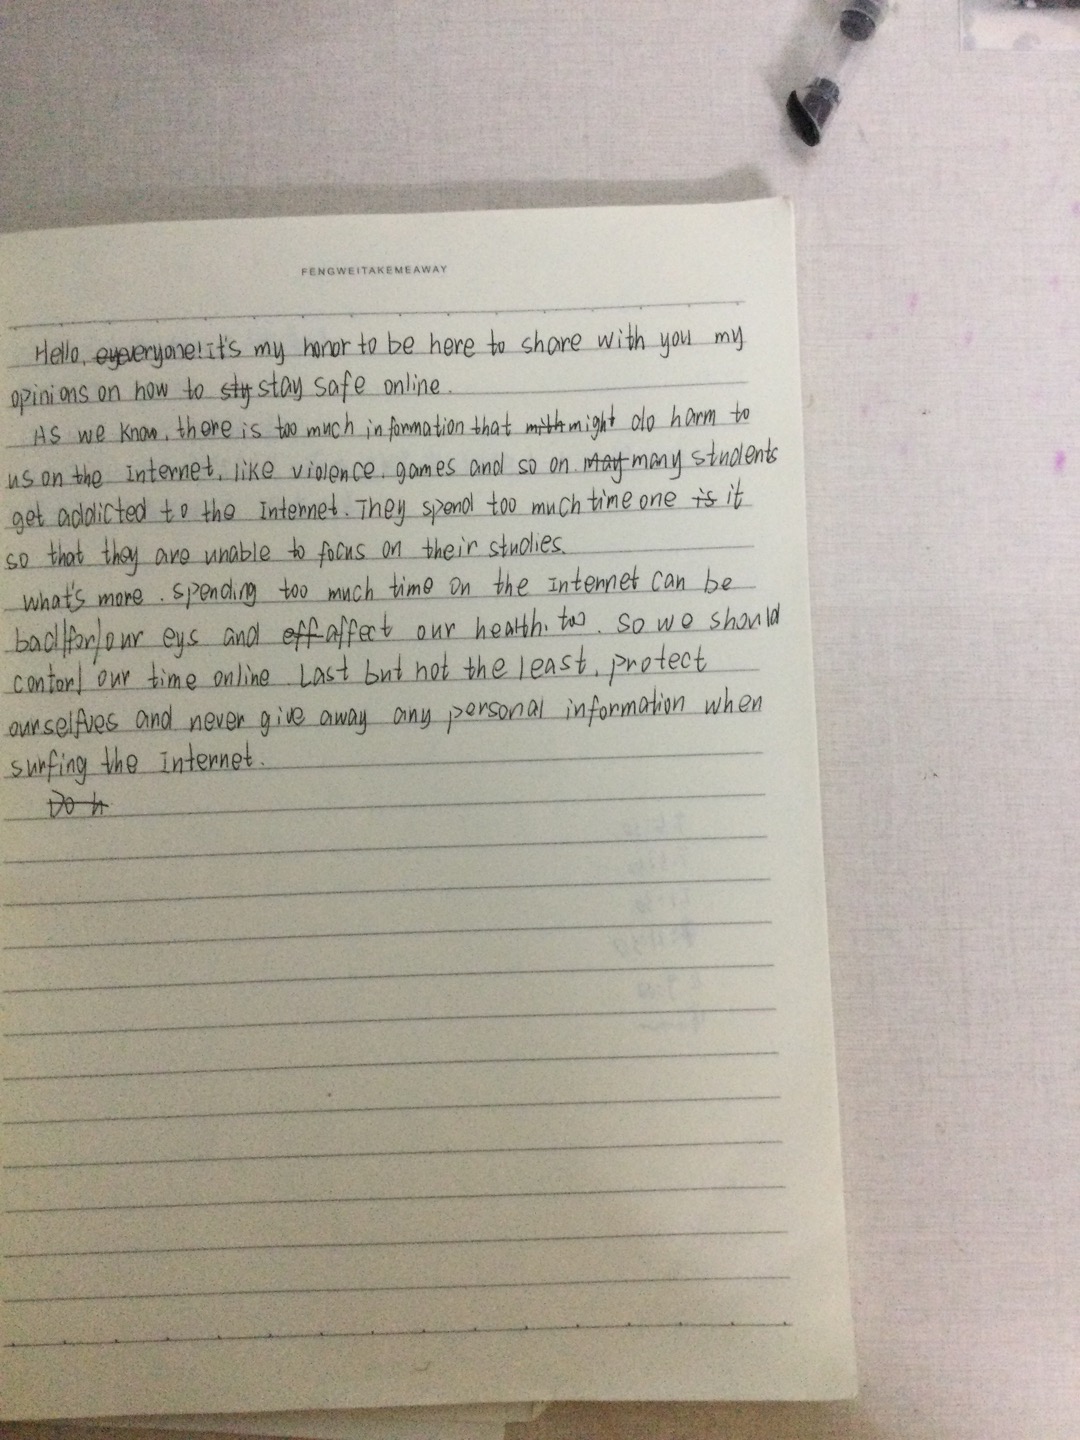 FENGWEITAKEMEAWAY
Hello, everyone! it's my honor to be here to share with you my
opinions on how to sty stay safe online.
As we know, there is too much information that mith might do harm to
us on the Internet, like violence, games and so on. may many students
get addicted to the Internet. They spend too much time one is it
so that they are unable to focus on their studies.
what's more. spending too much time on the Internet can be
bad/for/our eys and eff affect our health. too. So we should
contorl our time online. Last but not the least, protect
ourselfves and never give away any personal information when
surfing the Internet.
Do h